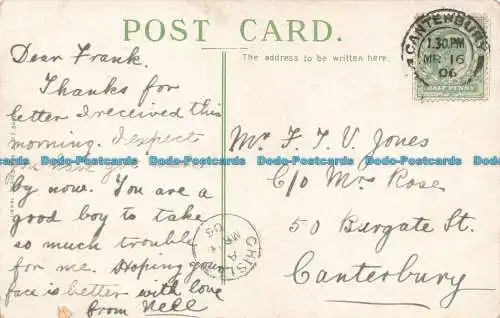 POST CARD.
The address to be written here.
CANTERBURY
1.30 PM
MR 16
06
HALF PENNY
Dear Frank.
Thanks for
letter I received this
morning. I expect
you have
by now. You are a
good boy to take
so much trouble
for me. Hoping your
face is better with love
from Nell
Mr F. T. V. Jones
C/o Mr Rose
50 Burgate St.
Canterbury
Dado-Postcards Dado-Postcards Dado-Postcards Dado-Postcards